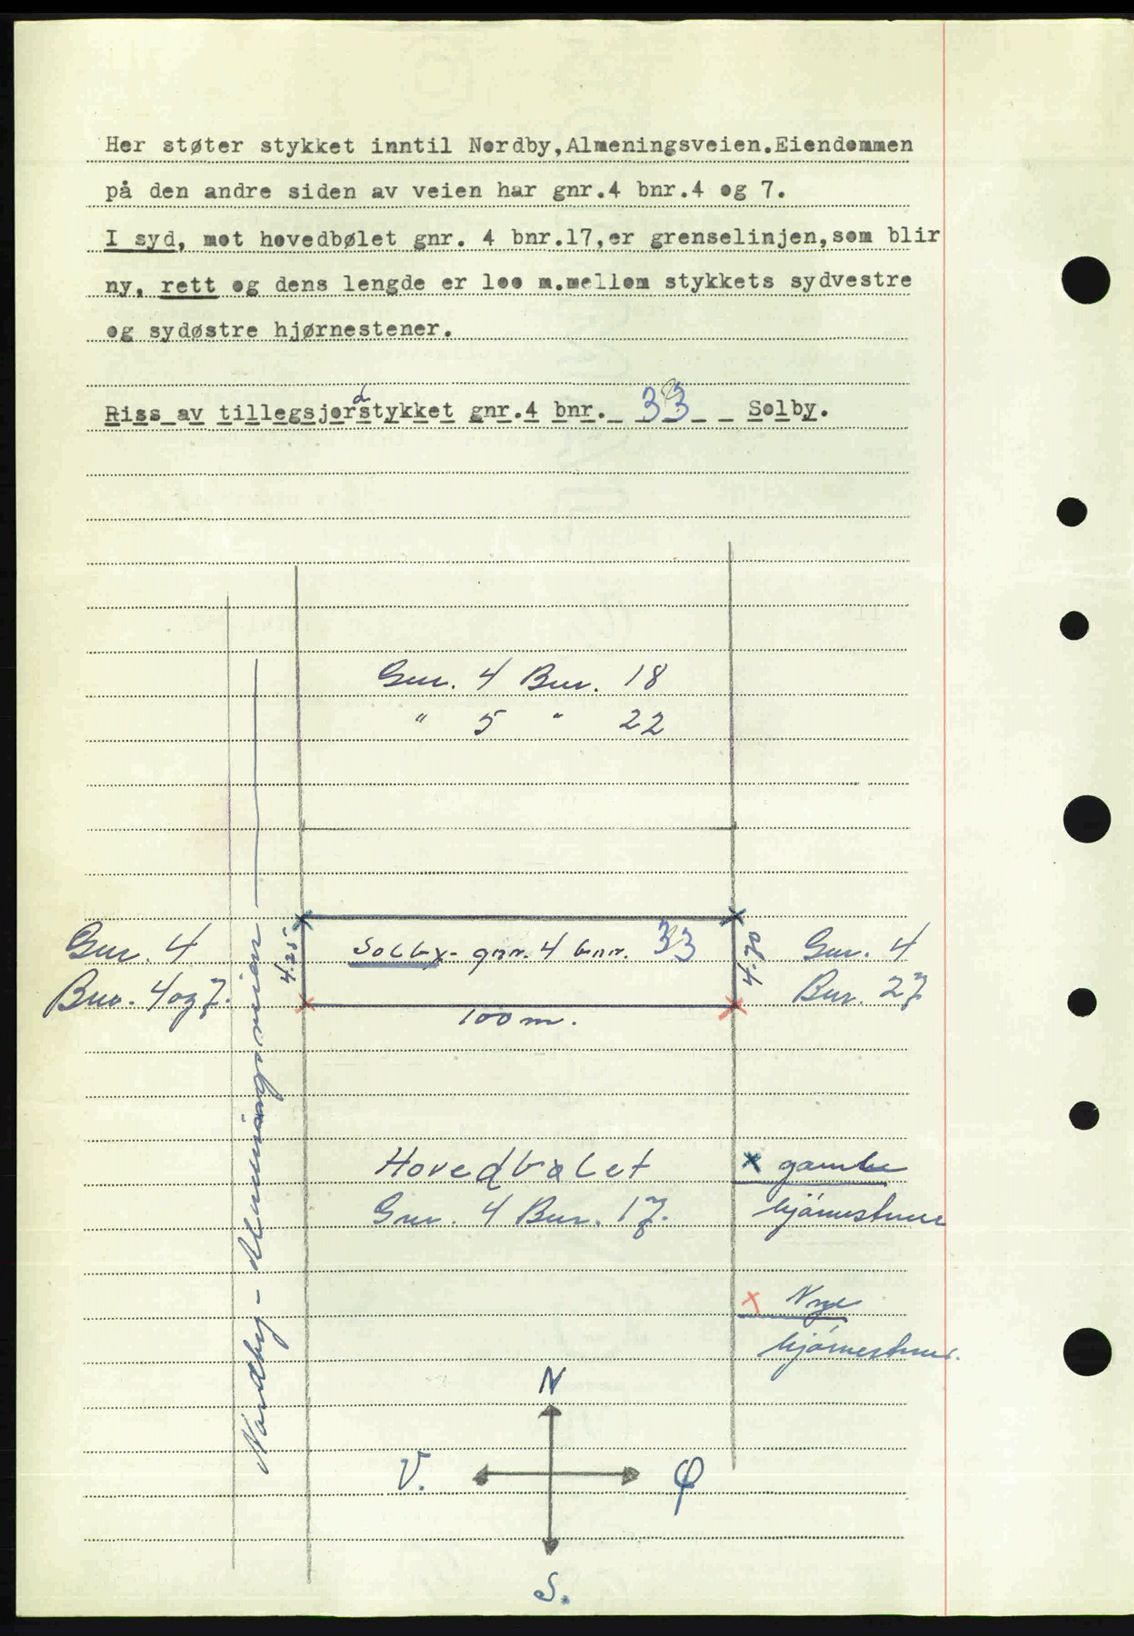 Her støter stykket inntil Nordby,Almeningsveien.Eiendommen
på den andre siden av veien har gnr.4 bnr.4 og 7.
I syd, mot hovedbølet gnr. 4 bnr.17,er grenselinjen,som blir
ny, rett og dens lengde er loo m.mellom stykkets sydvestre
og sydøstre hjørnestener.
Riss av tillegsjordstykket gnr.4 bnr. 33 Solby.
Gnr. 4 Bnr. 18
" 5 " 22
Gnr. 4
Bnr. 4 og 7.
4.25
Solby - gnr. 4 bnr. 33
4.70
Gnr. 4
Bnr. 27
100 m.
Nordby - Almeningsveien
Hovedbølet
Gnr. 4 Bnr. 17.
x gamle
hjørnestener
x Nye
hjørnestener.
N
V.
Ø
S.